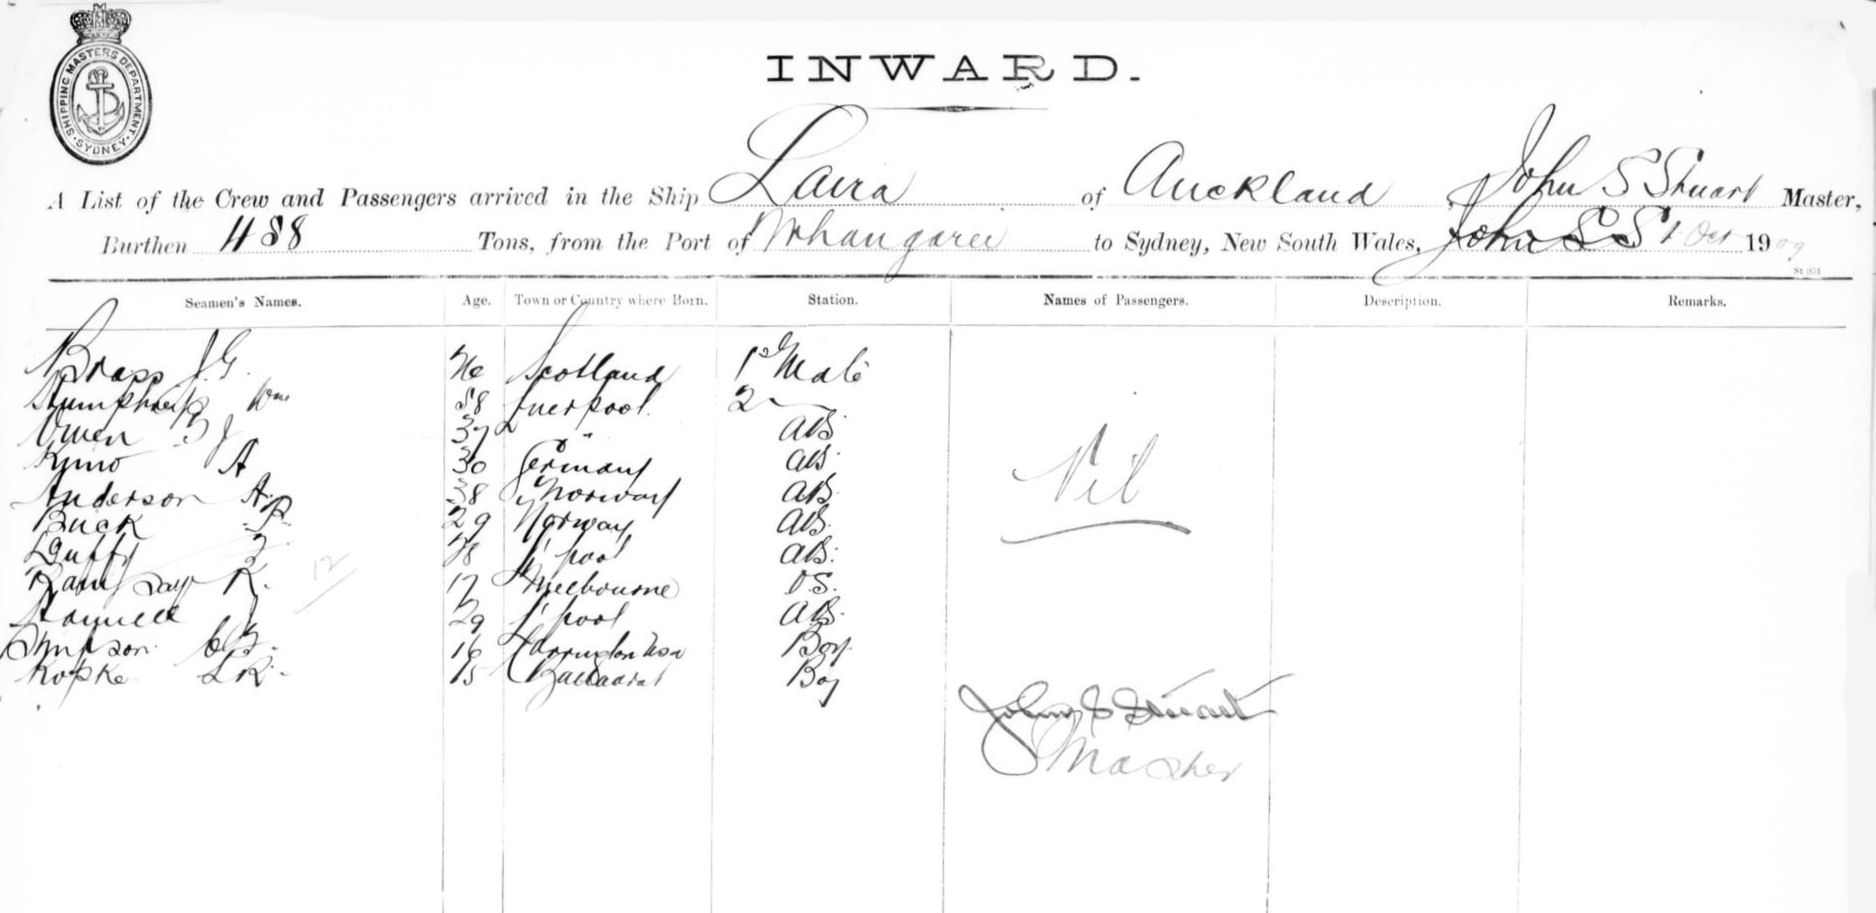 SHIPPING MASTERS DEPARTMENT
SYDNEY
INWARD.
A List of the Crew and Passengers arrived in the Ship Laira of Auckland, John S Stuart Master,
Burthen 488 Tons, from the Port of Whangarei to Sydney, New South Wales, John S S 1 Oct 1909
Seamen's Names. Age. Town or Country where Born. Station. Names of Passengers. Description. Remarks.
Brass J. G. Scotland 1st Mate
Humphreys Wm 58 Liverpool 2
Owen 37 " AB
A 30 Germany AB
Nil
Anderson A. 38 Norway AB
Buck P. 29 Norway AB
Duffy L'pool AB
12
Ramsay R. 17 Melbourne O.S.
J 29 L'pool AB
Simpson 16 Carrington NSW Boy
Kopke L R 15 Ballarat Boy
John S Stuart
Master